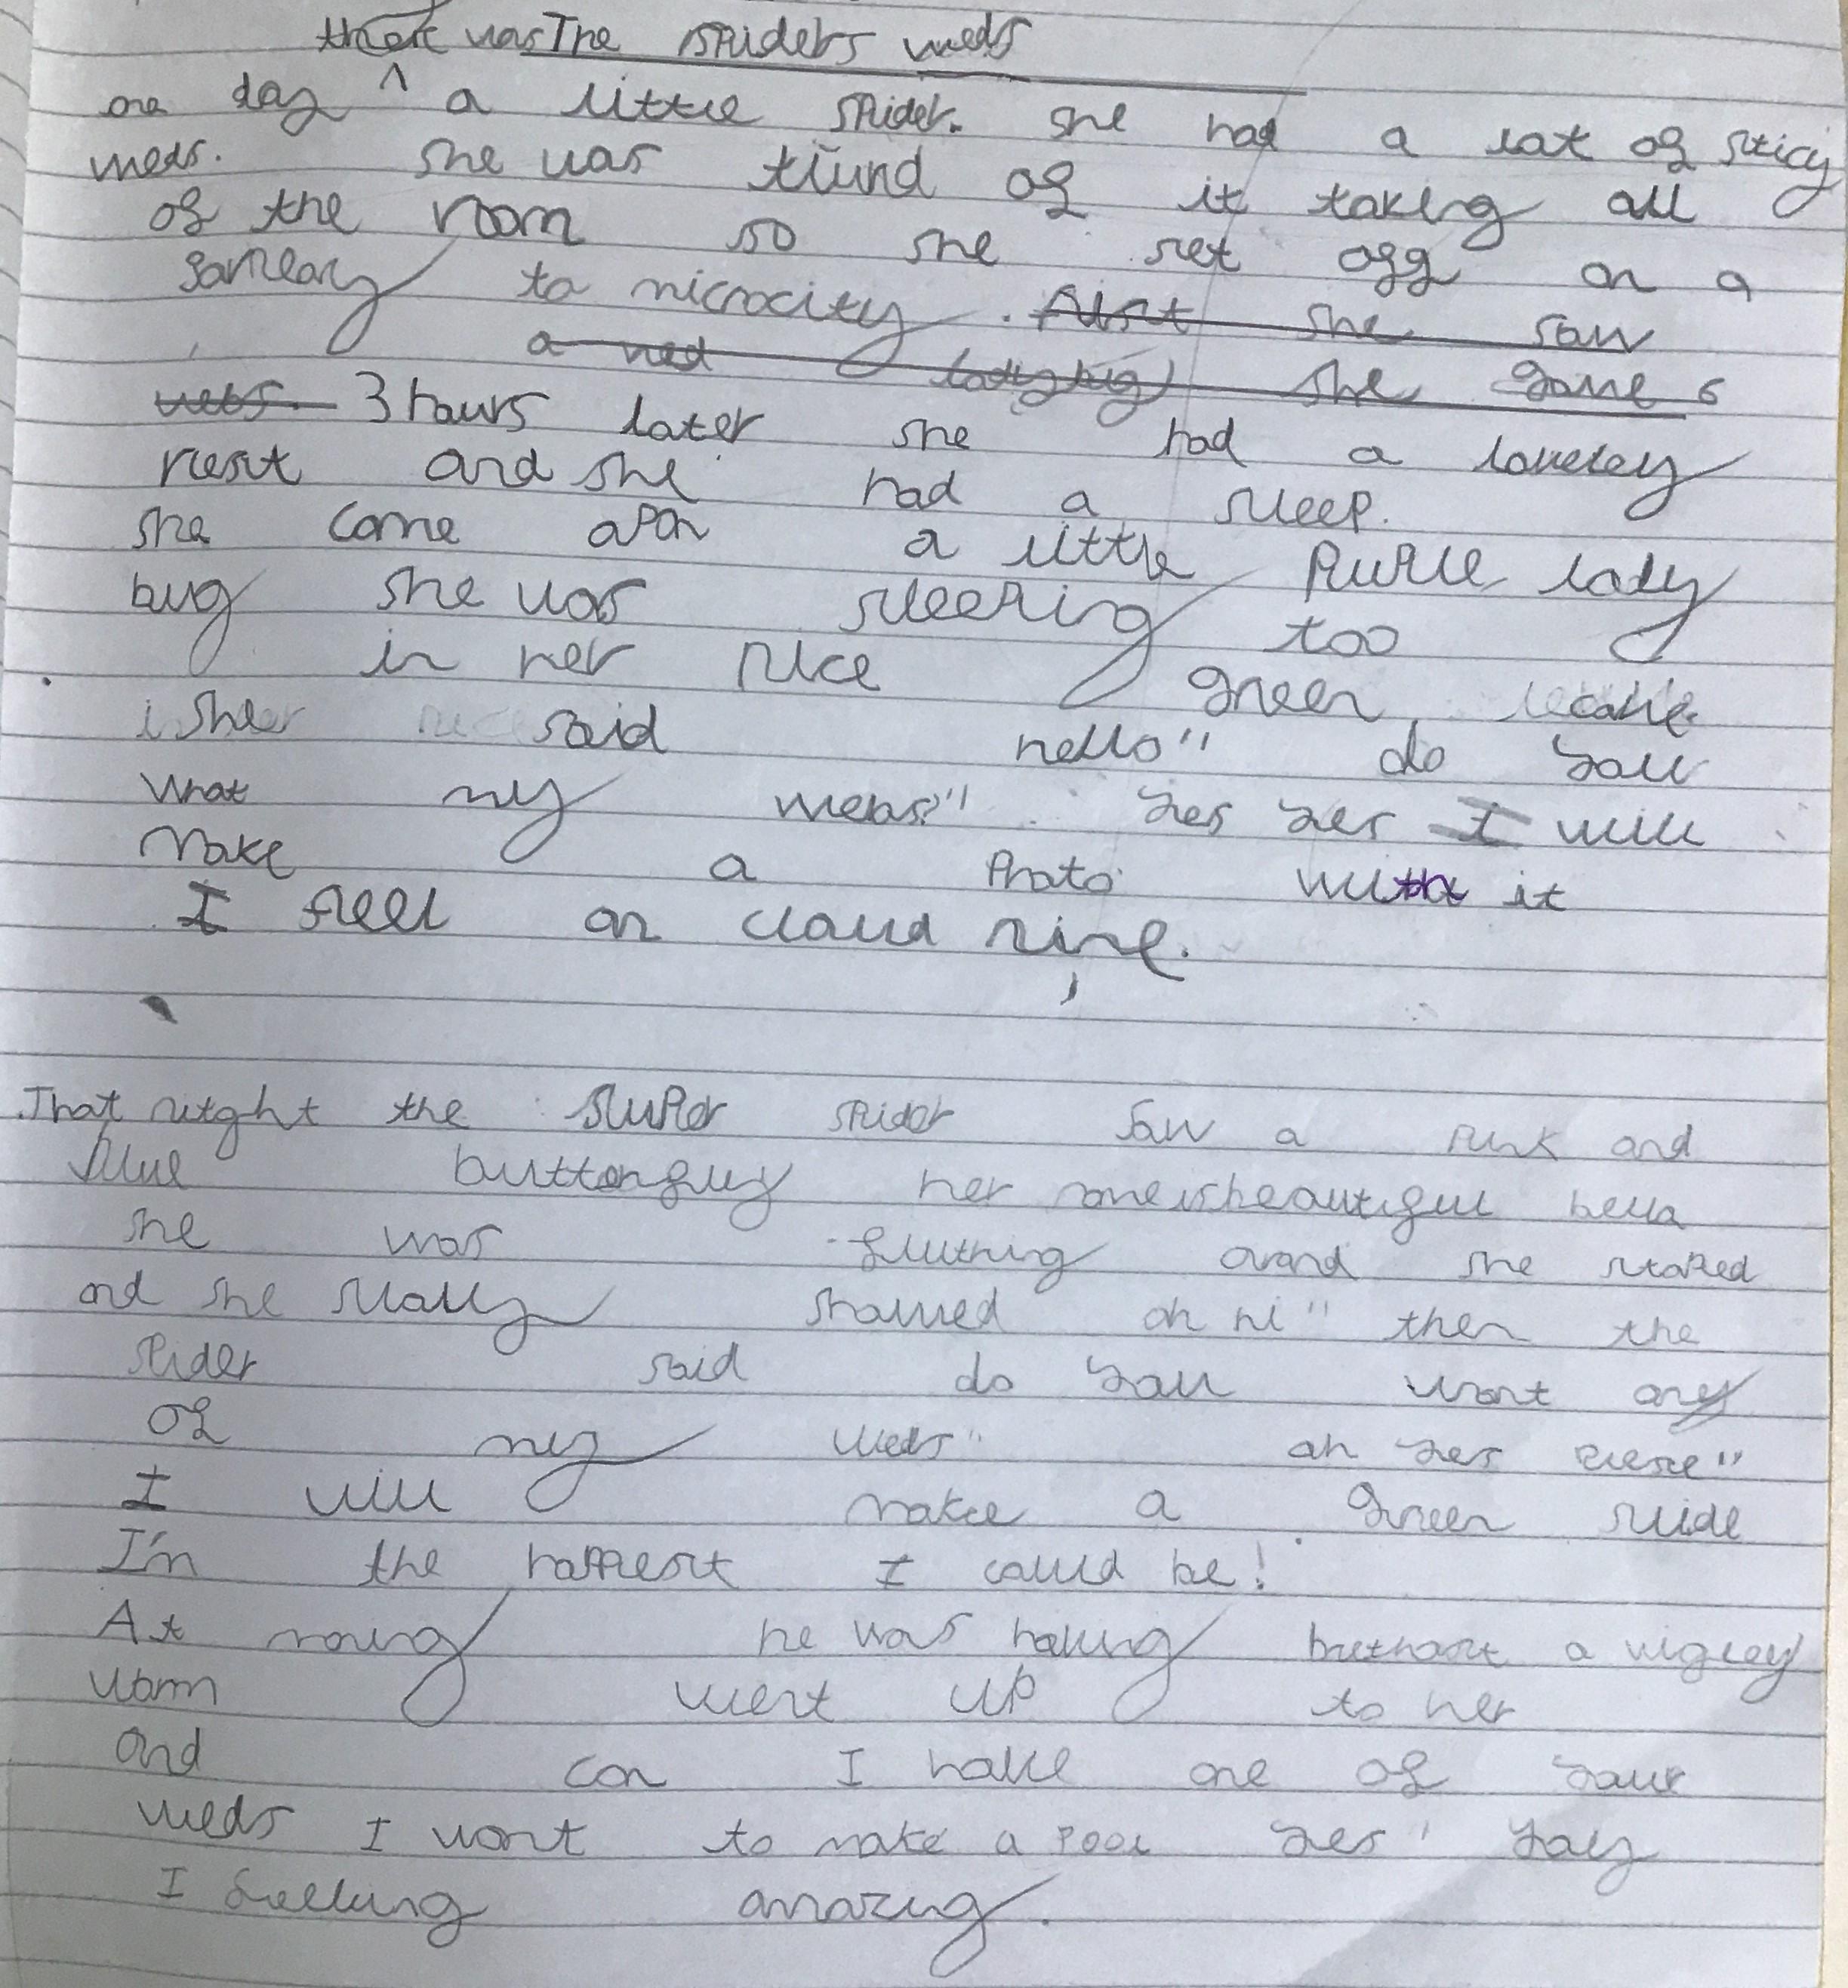 The spiders weds
there was
one day ^ a little spider. she had a lot of sticy
weds. she was tiurd of it taking all
of the room so she set off on a
jorneay to microcity. first she saw
a red ladybug she gave 6
webs. 3 hours later she had a loveley
rest and she had a sleep.
she come apon a little purple lady
bug she was sleeping too
in her nice green
she said hello" do you
what my webs?" yes yes I will
make a photo with it
I feel on cloud nine.
That nitght the super spider saw a pink and
blue butterfly her name is beautiful bella
she was fluthing arand she stoped
and she slally shawed oh hi" then the
spider said do you want any
of my weds" oh yes plese"
I will make a green slide
I'm the happest I could be!
At moing he was having buthast a wigley
worm went up to her
and can I have one of your
weds I want to make a pool yes" yay
I feeling amazing.